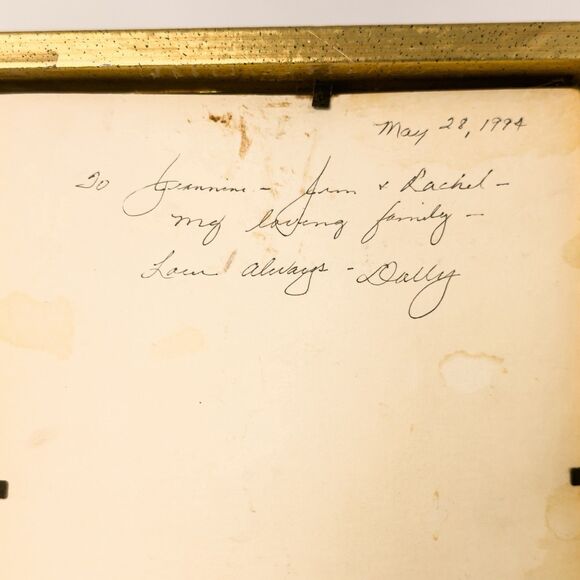 May 28, 1994
To Jeannine - Jim + Rachel -
my loving family -
Love always - Dolly